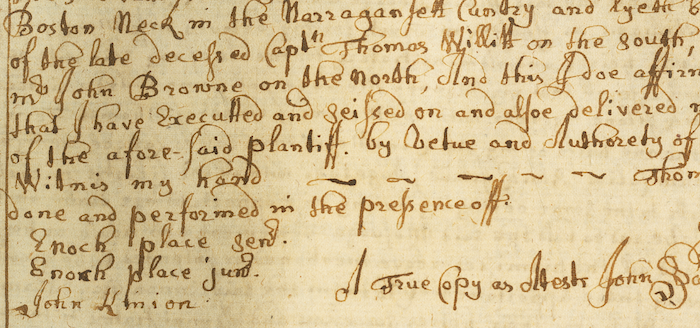 Boston Neck in the Narragansett Cuntry and lyeth
of the late decessed Captn Thomas Willitt on the South
mr John Browne on the North, And this I doe affirm
that I have Executted and seissed on and alsoe delivered
of the afore-said plantiff. by Vetue and Authorety of
Witnis my hand ~ ~ ~ ~ ~ ~ Thom
done and performed in the pressence off
Enoch place senr.
Enoch place junr.
John Kinion
A True Copy as Atests John